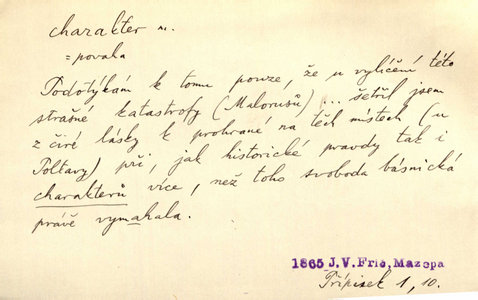 charakter m.
= povaha
Podotýkám k tomu pouze, že u vylíčení této
strašné katastrofy (Malorusů) ... šetřil jsem
z čiré lásky k prohrané na těch místech (u
Poltavy) při, jak historické pravdy tak i
charakterů více, než toho svoboda básnická
právě vymahala.
1865 J.V.Frič, Mazepa
Přípisek 1, 10.